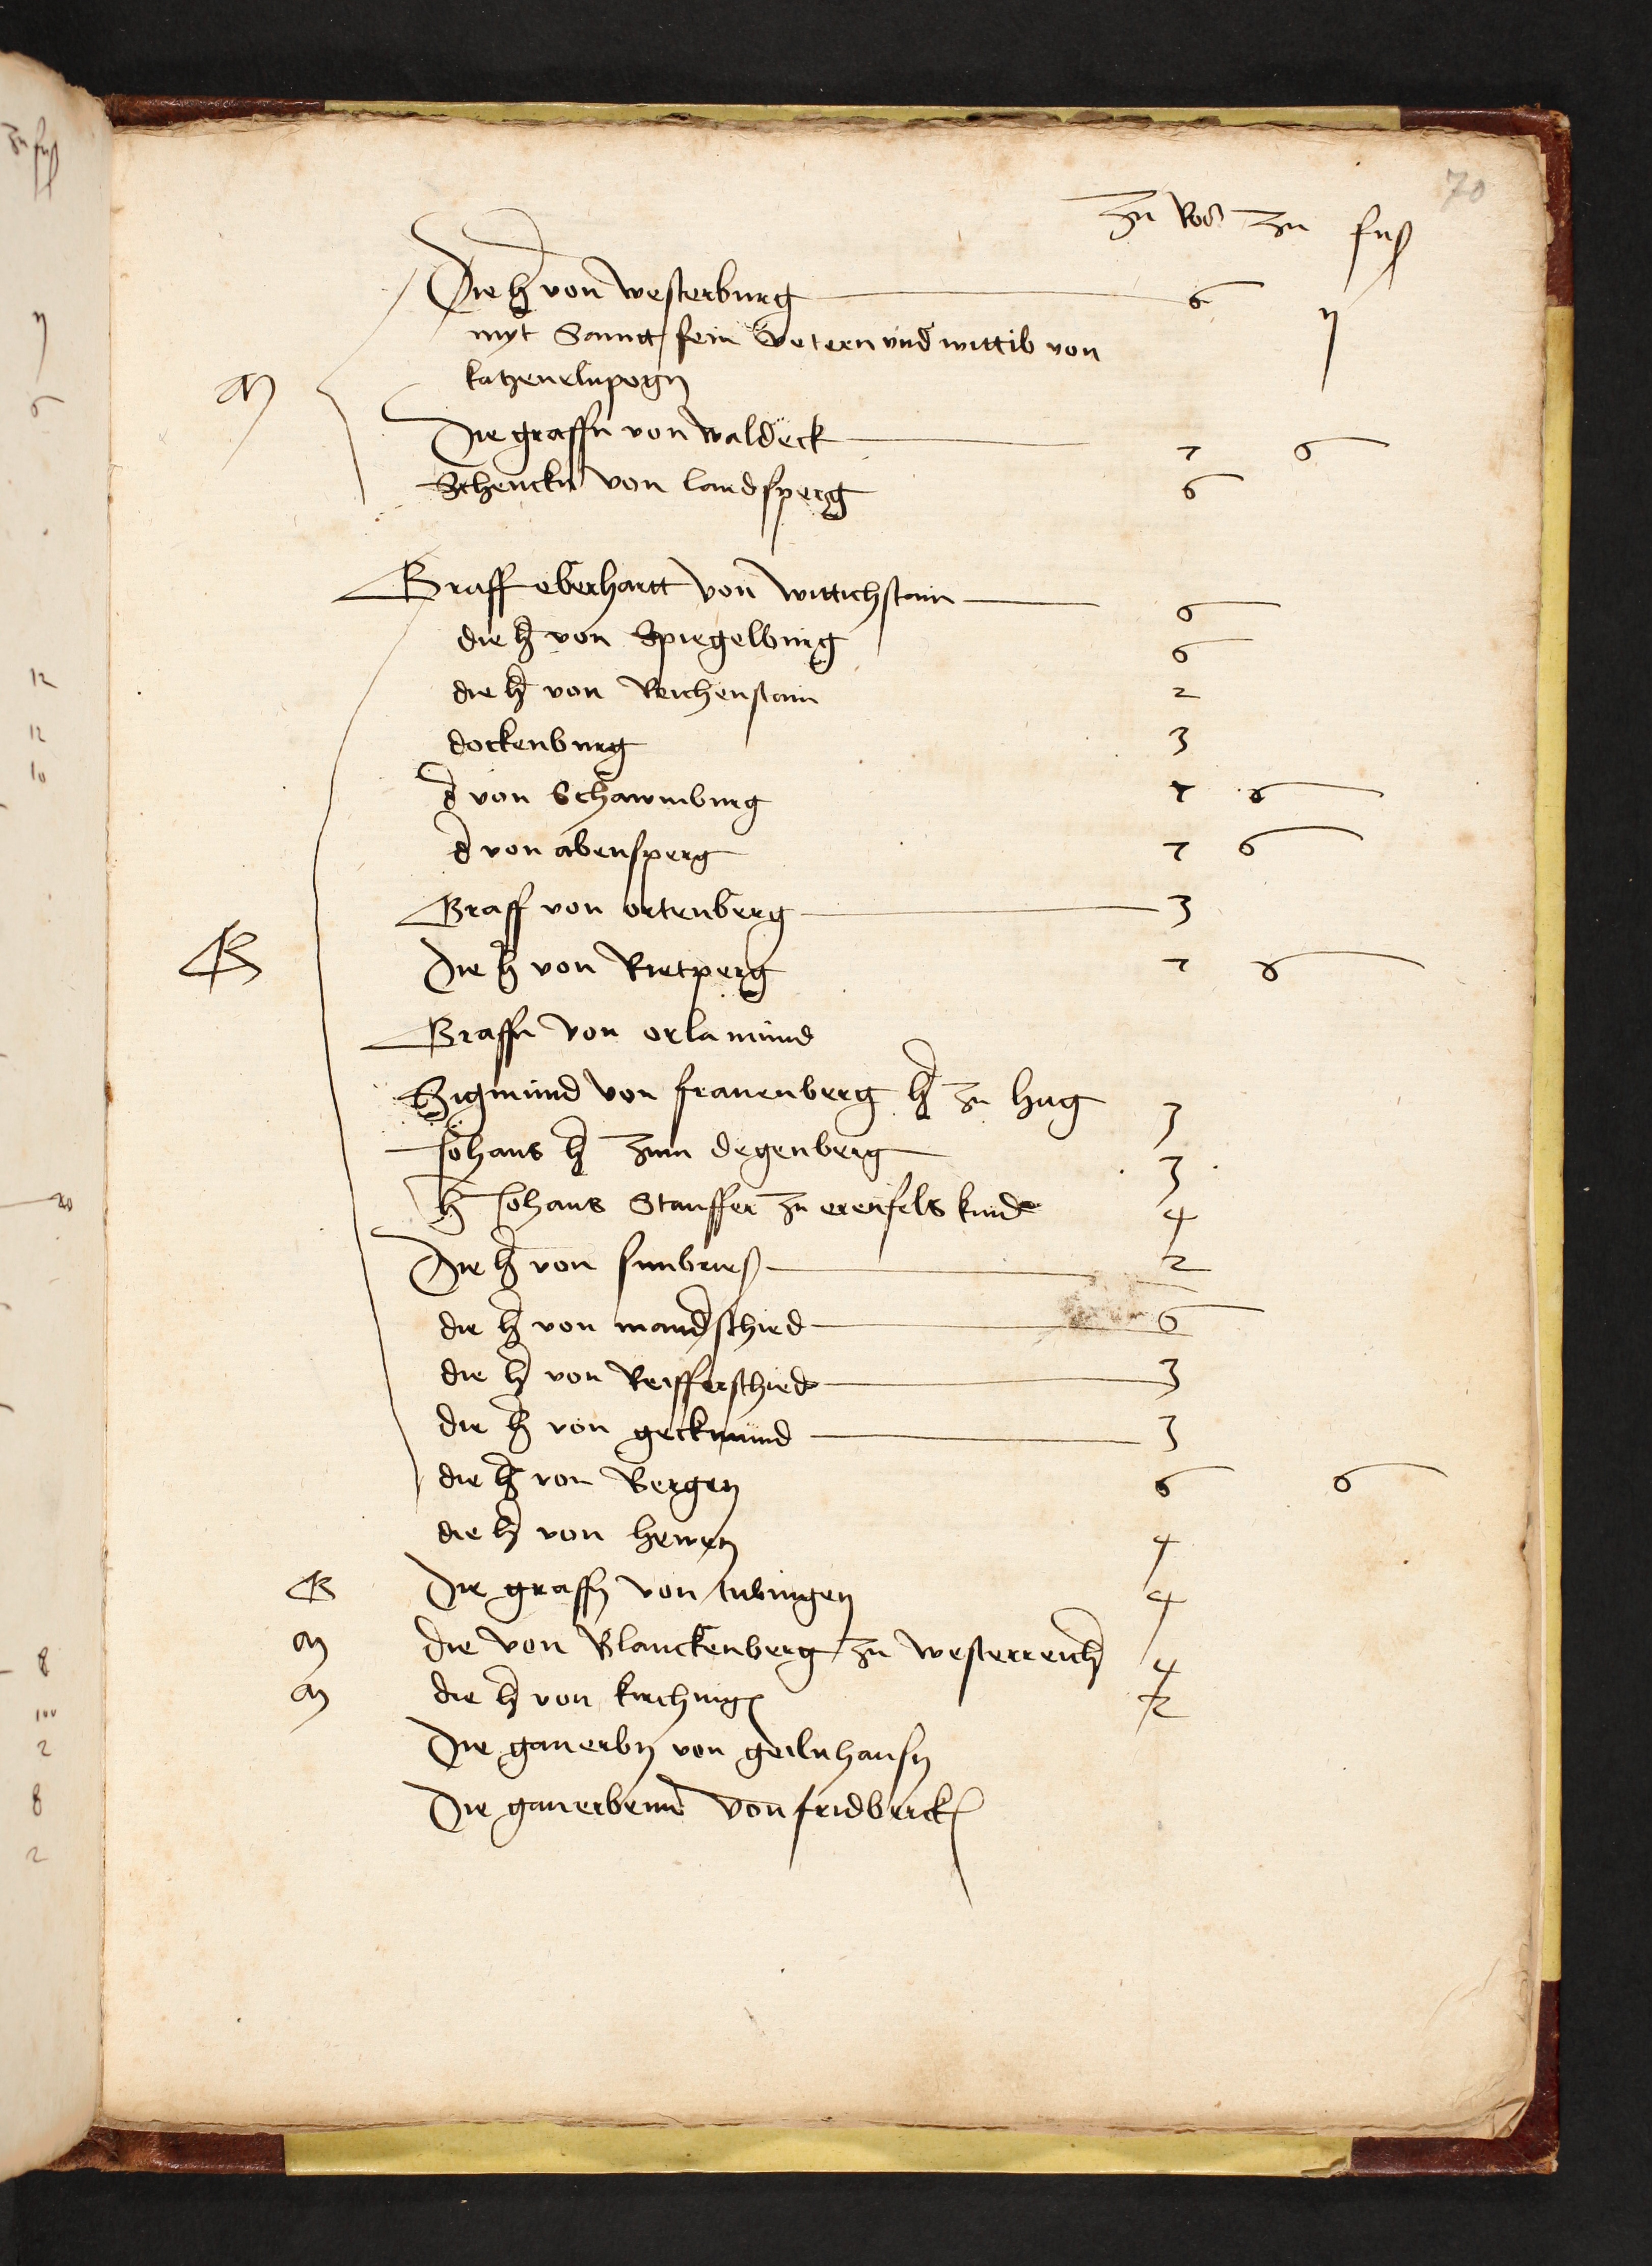 70
zu Ros zu fuß
Die h von westerburg 6 η
myt Sampt sein Vetern und wittib von
katzenelnpogn
M
Die graffn von waldeck 7 6
Schenckn von landsperg 6
Graff eberhartt von wittichstain 6
die h von Spiegelburg 6
die h von Reichenstain 2
dockenburg 3
d von Schawmburg 7 8
d von abensperg 7 6
Graff von ortenberg 3
G
Die h von Rietperg 7 8
Graffn von orlamund
Sigmund von frauenberg h zu hag 3
Johans h zum degenberg 3
h Johans Stauffer zu erenfels kind 4
Die h von sunbrieß 2
die h von mandschied 6
die h von Reifferschied 3
die h von geckmund 3
die h von Bergen 6 6
die h von hewen 4
G Die graffn von tubingen 4
M die von Blanckenberg zu westerreich 4
M die h von kirching 2
Die ganerbn von geilnhausn
Die ganerben von fridberck